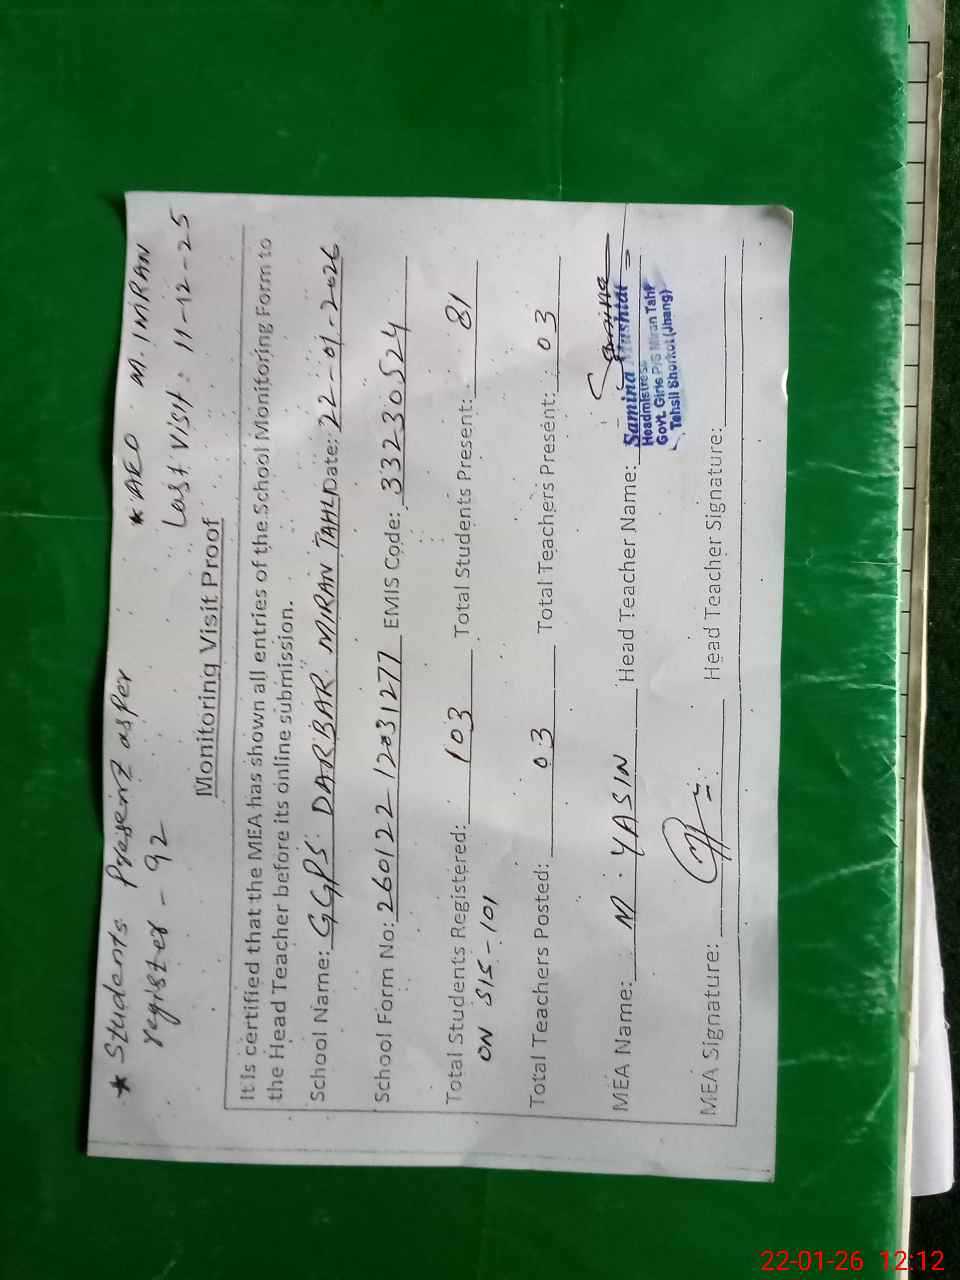 * Students Present as per
register - 92
* AEO M. IMRAN
Last Visit: 11-12-25
Monitoring Visit Proof
It is certified that the MEA has shown all entries of the School Monitoring Form to
the Head Teacher before its online submission.
School Name: GGPS DARBAR MIRAN TAHLI Date: 22-01-2026
School Form No: 260122 1203 1277 EMIS Code: 33230524
Total Students Registered: 103 Total Students Present: 81
ON SIS - 101
Total Teachers Posted: 03 Total Teachers Present: 03
MEA Name: M. YASIN Head Teacher Name: Samina
Samina Mushtaq
Headmistress
Govt. Girls P/S Miran Tahli
Tehsil Shorkot (Jhang)
MEA Signature: Head Teacher Signature:
22-01-26 12:12